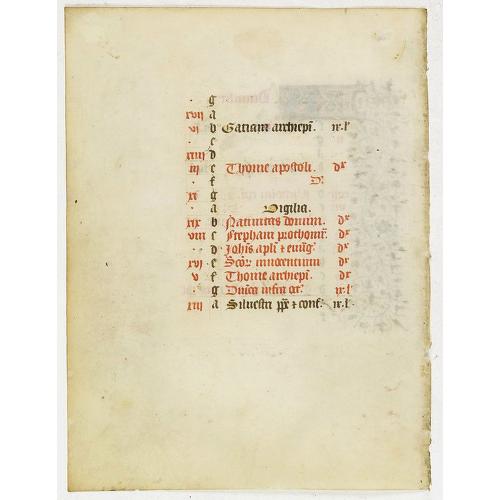 . g
xvii a
vi b Gatiani archiepi. ix.l'
. c
xiiii d
iii e Thome apostoli. dx
. f D.
xi g
. a Vigilia.
xix b Natiuitas domini. dx
viii c Stephani prothom̄. dx
. d Johīs apli ⁊ euāg̃. dx
xvi e Scōꝝ innocentium dx
v f Thome archiepī. dx
. g Dnīca infra oct. ix.l'
xiii a Siluestri pp̄e ⁊ conf. ix.l'